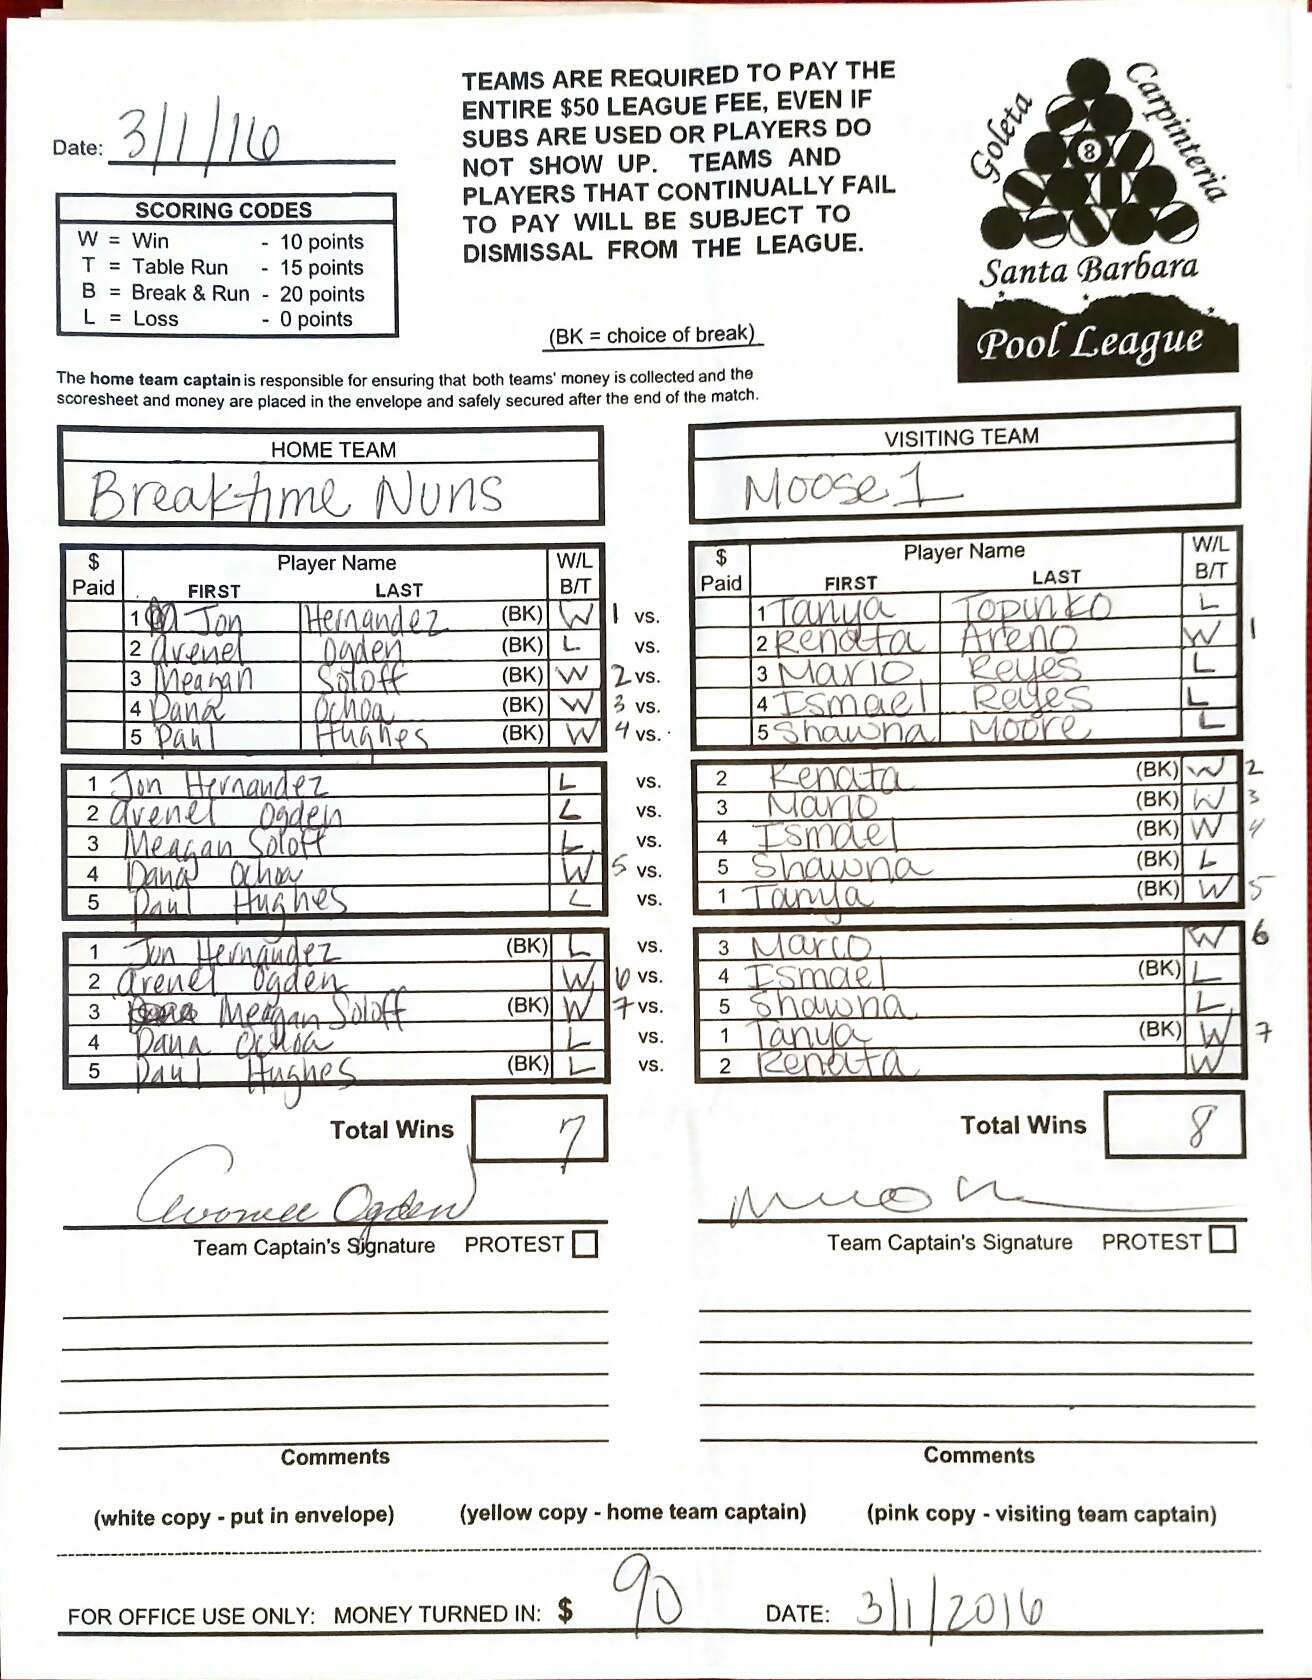 Date: 3/1/16
TEAMS ARE REQUIRED TO PAY THE
ENTIRE $50 LEAGUE FEE, EVEN IF
SUBS ARE USED OR PLAYERS DO
NOT SHOW UP. TEAMS AND
PLAYERS THAT CONTINUALLY FAIL
TO PAY WILL BE SUBJECT TO
DISMISSAL FROM THE LEAGUE.
Goleta
Carpinteria
8
Santa Barbara
Pool League
SCORING CODES
W = Win - 10 points
T = Table Run - 15 points
B = Break & Run - 20 points
L = Loss - 0 points
(BK = choice of break)
The home team captain is responsible for ensuring that both teams' money is collected and the
scoresheet and money are placed in the envelope and safely secured after the end of the match.
HOME TEAM
Breaktime Nuns
VISITING TEAM
Moose 1
$ Paid Player Name FIRST LAST W/L B/T
$ Paid Player Name FIRST LAST W/L B/T
1 Jon Hernandez (BK) W 1 vs. 1 Tanya Topinko L
2 Arenel Ogden (BK) L vs. 2 Renata Areno W 1
3 Meagan Soloff (BK) W 2 vs. 3 Mario Reyes L
4 Dana Ochoa (BK) W 3 vs. 4 Ismael Reyes L
5 Paul Hughes (BK) W 4 vs. 5 Shawna Moore L
1 Jon Hernandez L vs. 2 Renata (BK) W 2
2 Arenel Ogden L vs. 3 Mario (BK) W 3
3 Meagan Soloff L vs. 4 Ismael (BK) W 4
4 Dana Ochoa W 5 vs. 5 Shawna (BK) L
5 Paul Hughes L vs. 1 Tanya (BK) W 5
1 Jon Hernandez (BK) L vs. 3 Marco W 6
2 Arenel Ogden W 6 vs. 4 Ismael (BK) L
3 Meagan Soloff (BK) W 7 vs. 5 Shawna L
4 Dana Ochoa L vs. 1 Tanya (BK) W 7
5 Paul Hughes (BK) L vs. 2 Renata W
Total Wins 7
Total Wins 8
Ogden
Team Captain's Signature PROTEST
Team Captain's Signature PROTEST
Comments
Comments
(white copy - put in envelope) (yellow copy - home team captain) (pink copy - visiting team captain)
FOR OFFICE USE ONLY: MONEY TURNED IN: $ 90 DATE: 3/1/2016